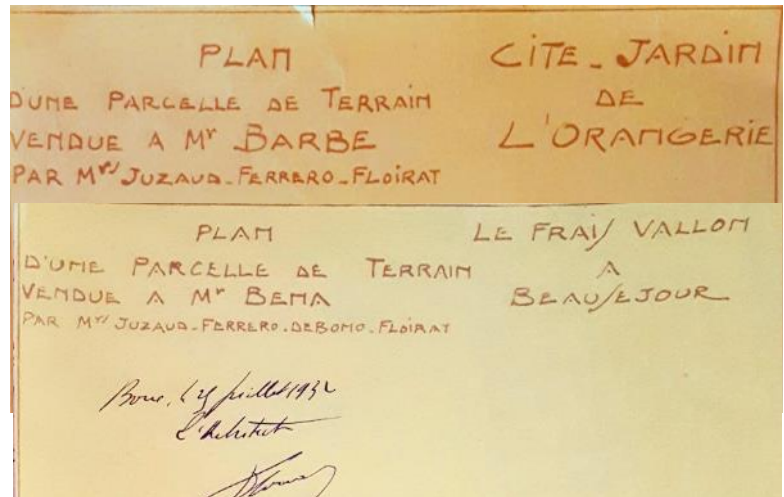 PLAN
D'UNE PARCELLE DE TERRAIN
VENDUE A Mr BARBE
PAR Mrs JUZAUD_FERRERO_FLOIRAT
CITE_JARDIN
DE
L'ORANGERIE
PLAN
D'UNE PARCELLE DE TERRAIN
VENDUE A Mr BENA
PAR Mrs JUZAUD_FERRERO_DEBONO_FLOIRAT
LE FRAIS VALLON
A
BEAUSEJOUR
Bone, juillet 1932
L'Architecte